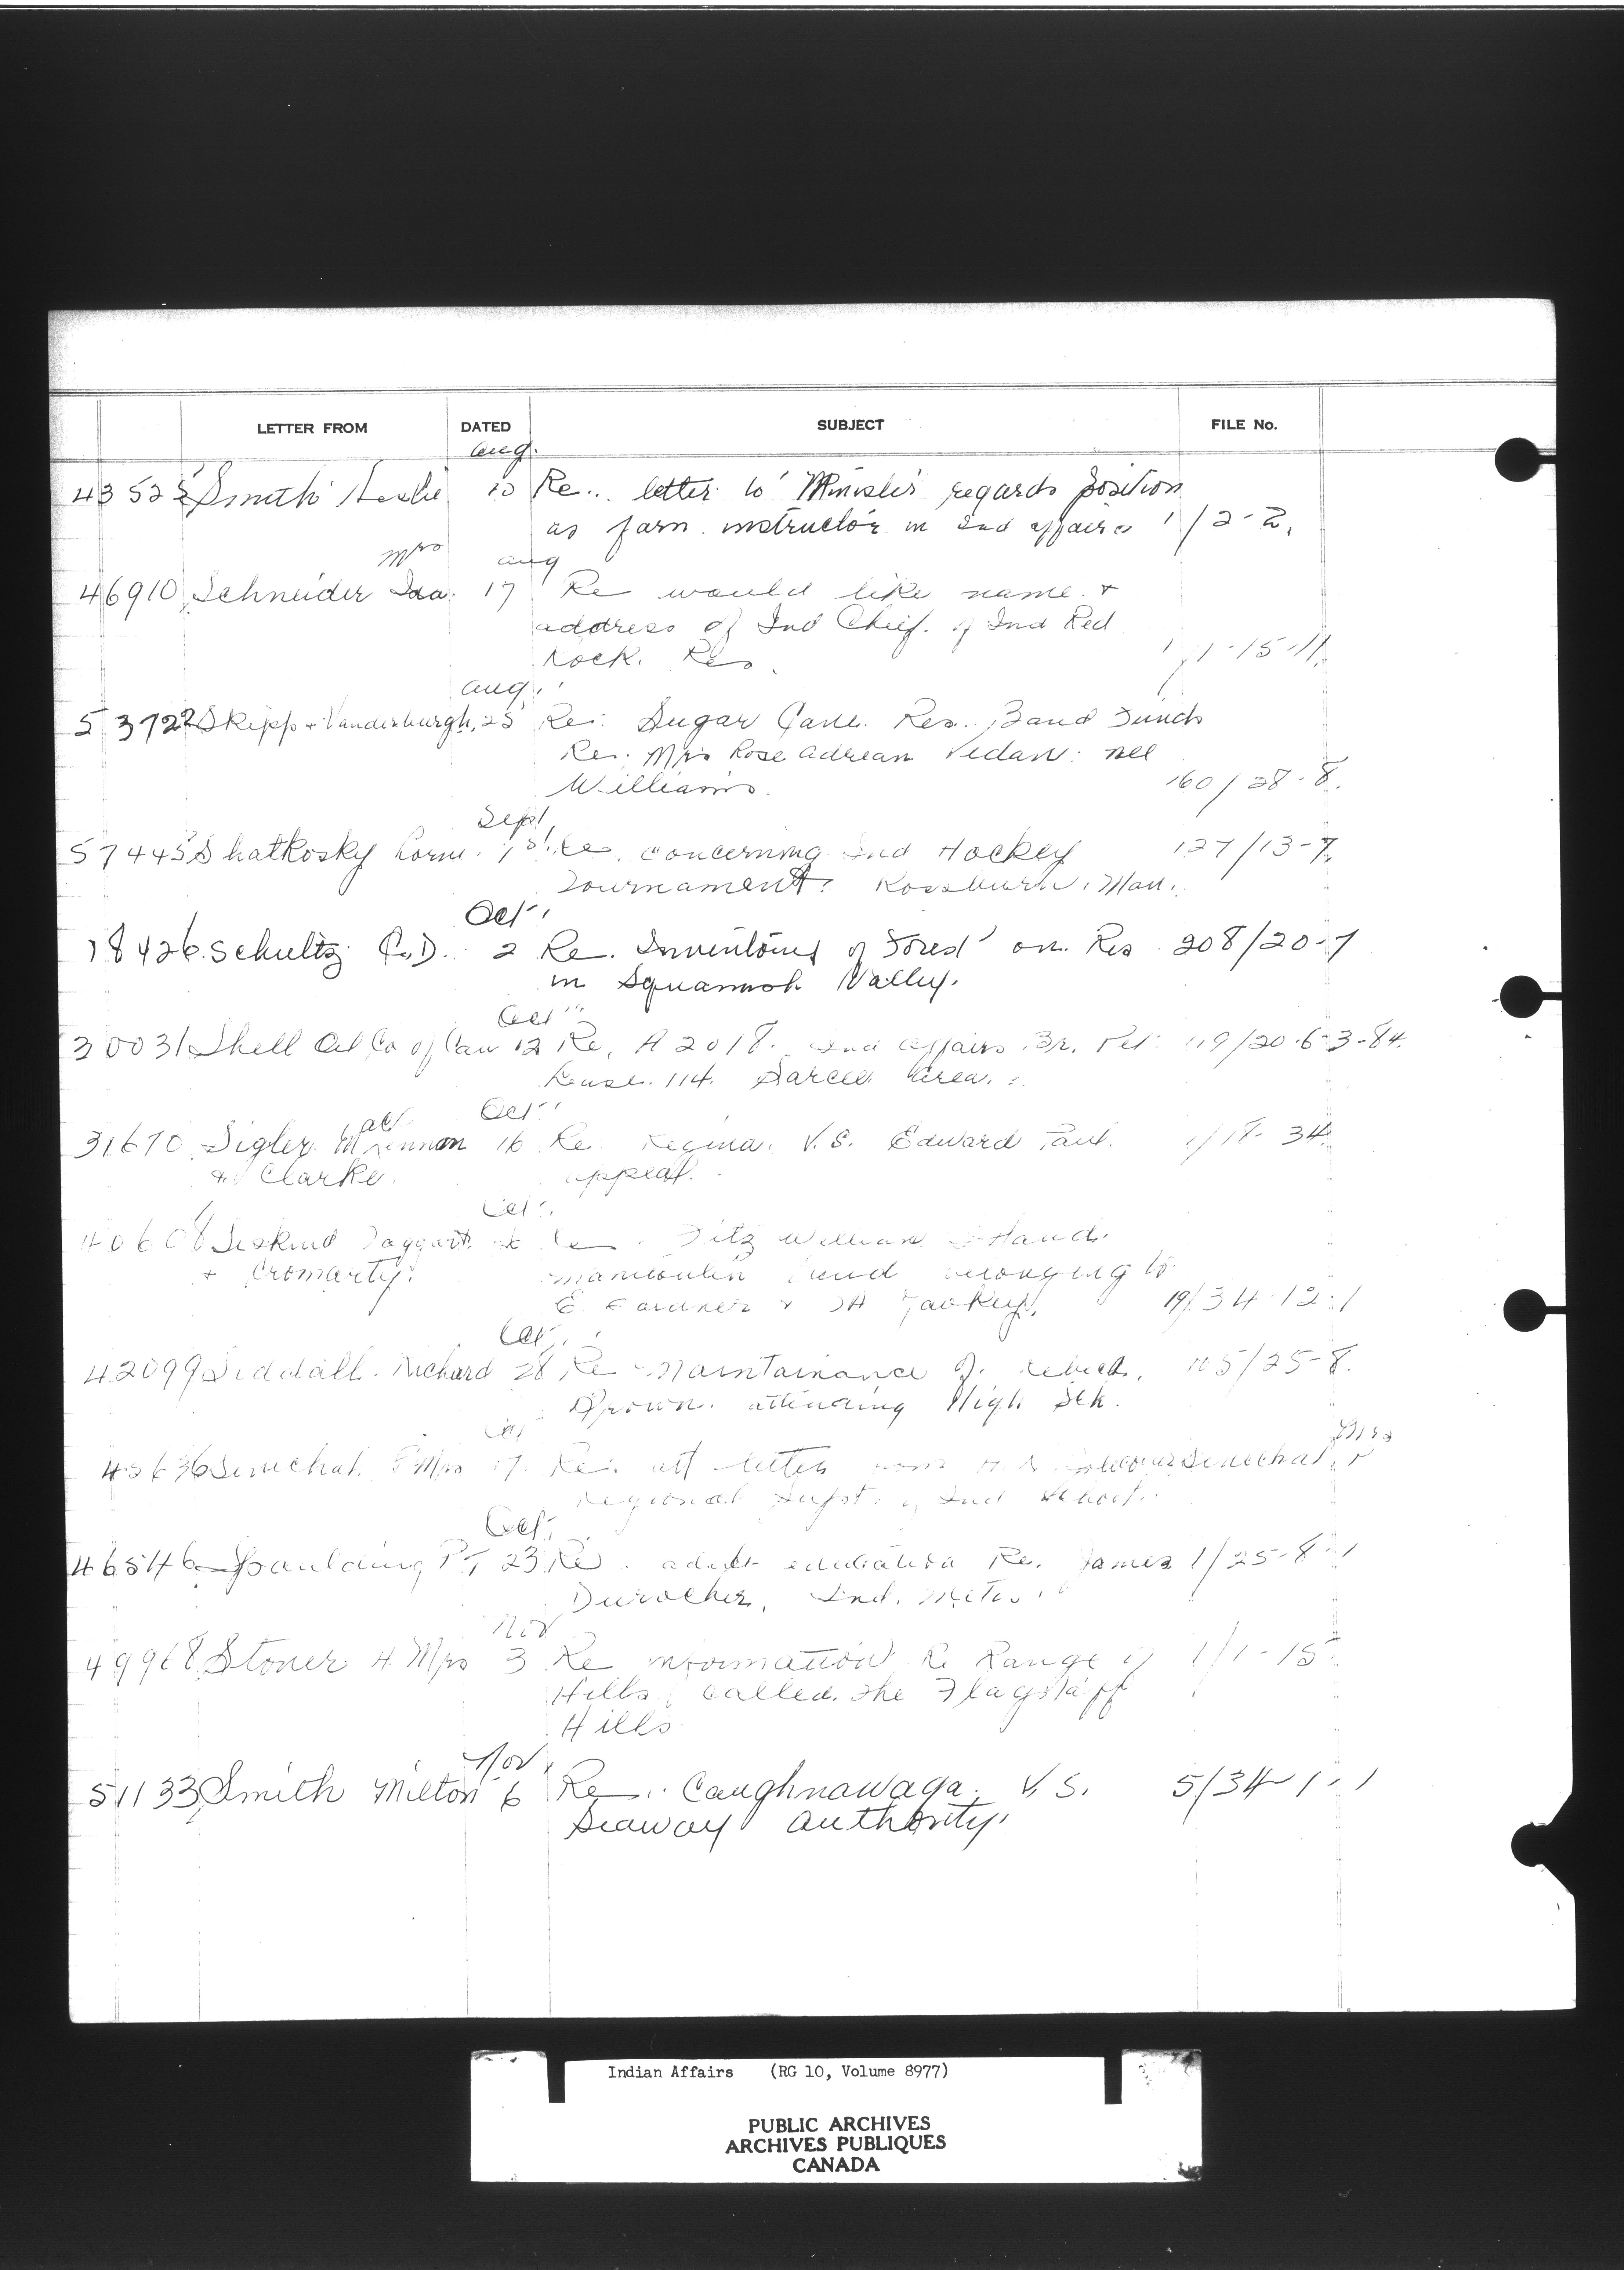 LETTER FROM DATED SUBJECT FILE No.
Aug.
43523 Smith Leslie 10 Re.. letter to Minister regards position
as farm instructor in Ind affairs 1/2-2.
Mrs Aug
46910 Schneider Ida. 17 Re would like name &
address of Ind Chief. of Ind Red
Rock. Res. 1/1-15-11.
Aug.
53722 Skipp & Vanderburgh, 25 Re: Sugar Cane Res. Band Funds
Re. Mrs Rose Adrean Vedan: nee
Williams. 160/28-8.
Sept
57445 Shatkosky Lorne. 1st. Re. concerning Ind Hockey 127/13-7.
Tournament. Rossburn, Man.
Oct
18426 Schultz C.D. 2 Re. Inventory of Forest on Res 208/20-7
in Squamish Valley.
Oct
30031 Shell Oil Co of Can 12 Re, A 2018. Ind Affairs Br. Pet. 119/20-6-3-84.
Lease. 114. Sarcee Area.
Oct
31670 Sigler. Mclennon 16 Re Regina. V.S. Edward Paul. 1/18-34.
& Clarke. appeal.
Oct
40608 Siskind Taggart Re. Fitz William Island.
& Cromarty. Manitoulin belonging to
E. Gardner & 19/34-12-1
Oct.
42099 Siddall. Richard 28 Re Maintainance of 105/25-8.
Brown. attending High Sch.
Oct Mrs
Senechal. Mrs Re. att letter from Senechal.
Regional Supt. of Ind School.
Oct.
46546 Spaulding P.T 23 Re. adult education Re. James 1/25-8-1
Durocher, Ind. Metis.
Nov
49968 Stoner H. Mrs 3 Re information Re Range of 1/1-15
Hills, called the Flagstaff
Hills.
Nov.
51133 Smith Milton 6 Re.. Caughnawaga. V.S. 5/34-1-1
Seaway Authority.
Indian Affairs (RG 10, Volume 8977)
PUBLIC ARCHIVES
ARCHIVES PUBLIQUES
CANADA